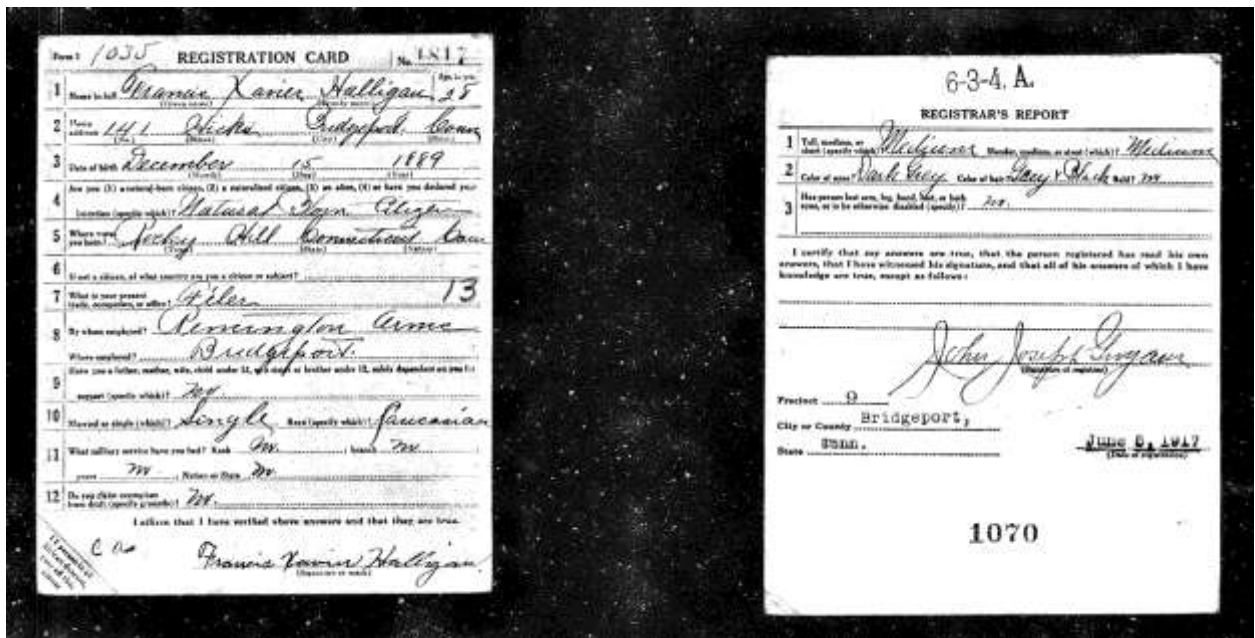 Form 1 1035 REGISTRATION CARD No. 1817
1 Name in full Francis Xavier Halligan Age, in yrs. 28
(Given name) (Family name)
2 Home address 141 Hicks Bridgeport Conn
(No.) (Street) (City) (State)
3 Date of birth December 15 1889
(Month) (Day) (Year)
Are you (1) a natural-born citizen, (2) a naturalized citizen, (3) an alien, (4) or have you declared your
4 intention (specify which)? Natural Born Citizen
5 Where were you born? Rocky Hill Connecticut
(Town) (State) (Nation)
6 If not a citizen, of what country are you a citizen or subject?
7 What is your present trade, occupation, or office? Filer 13
8 By whom employed? Remington Arms
Where employed? Bridgeport.
9 Have you a father, mother, wife, child under 12, or a sister or brother under 12, solely dependent on you for
support (specify which)? No.
10 Married or single (which)? Single Race (specify which)? Caucasian
11 What military service have you had? Rank No. ; branch No
years No ; Nation or State No.
12 Do you claim exemption from draft (specify grounds)? No.
I affirm that I have verified above answers and that they are true.
Francis Xavier Halligan
(Signature or mark)
6-3-4. A.
REGISTRAR'S REPORT
1 Tall, medium, or short (specify which)? Medium Slender, medium, or stout (which)? Medium
2 Color of eyes? Dark Grey Color of hair? Grey & Black Bald? No
3 Has person lost arm, leg, hand, foot, or both eyes, or is he otherwise disabled (specify)? No.
I certify that my answers are true, that the person registered has read his own
answers, that I have witnessed his signature, and that all of his answers of which I have
knowledge are true, except as follows:
John Joseph
(Signature of registrar)
Precinct 9
City or County Bridgeport,
State Conn. June 5, 1917
(Date of registration)
1070